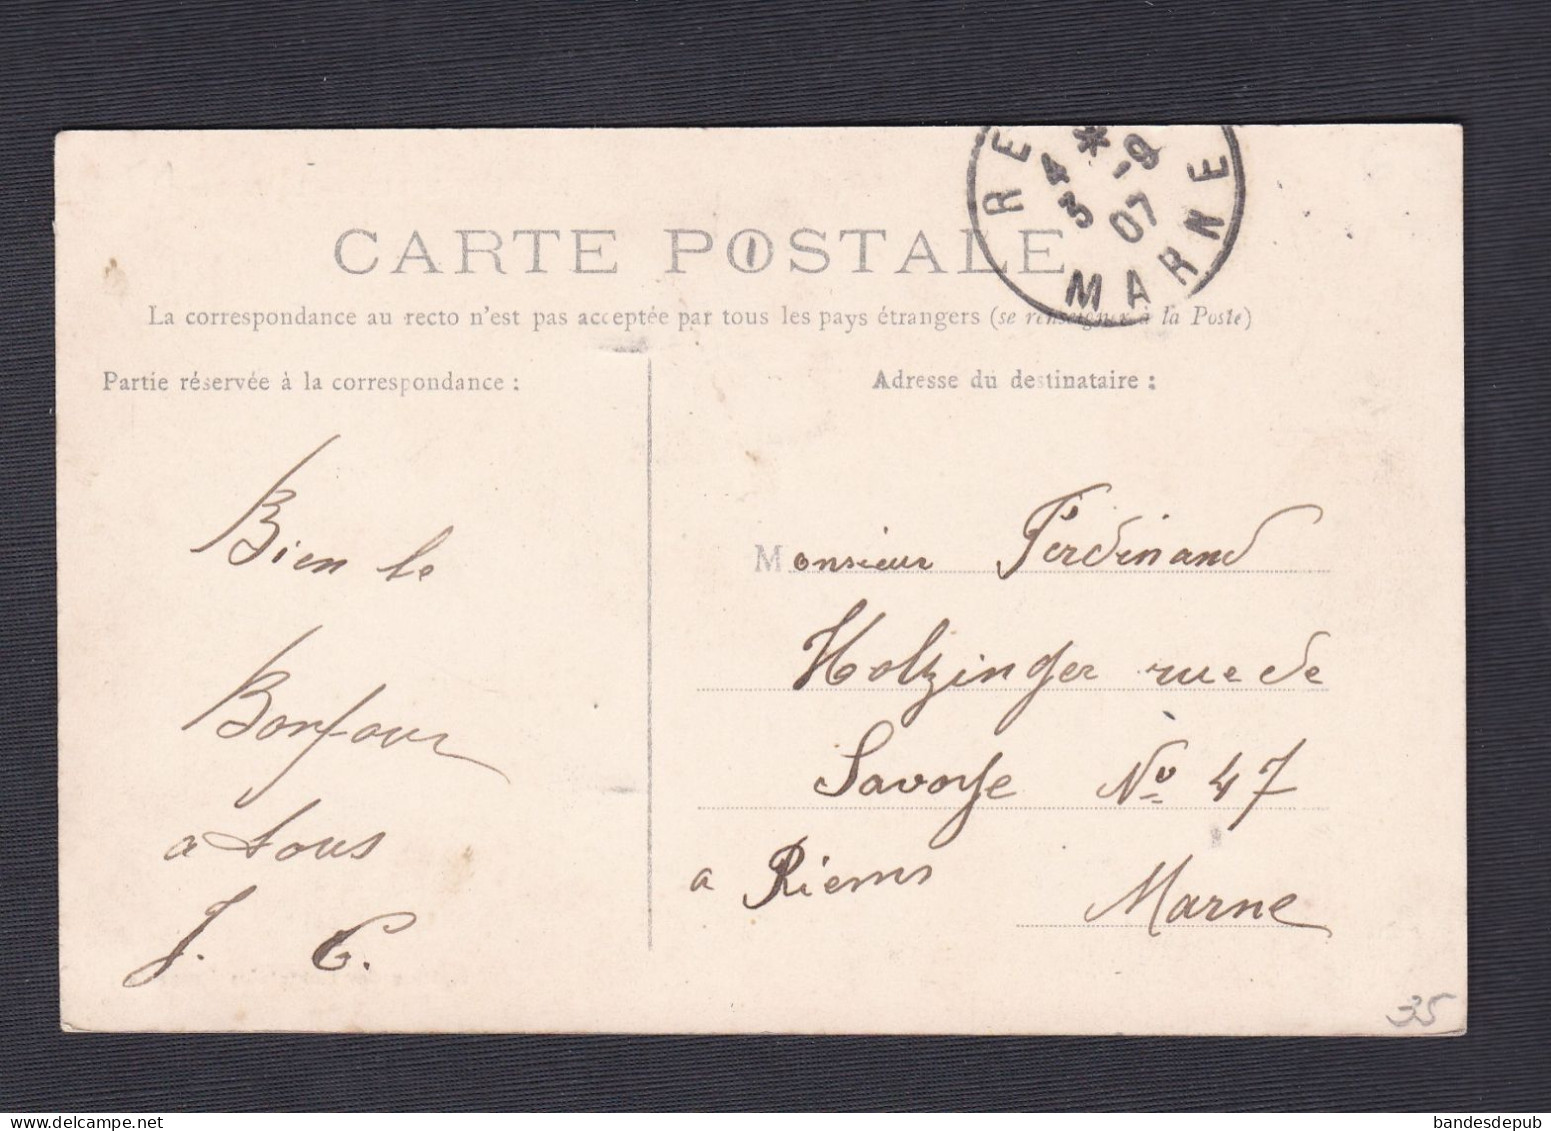 RE
MARNE
4 * -9
3 07
CARTE POSTALE
La correspondance au recto n'est pas acceptée par tous les pays étrangers (se renseigner à la Poste)
Partie réservée à la correspondance :
Adresse du destinataire :
Bien le
Bonjour
a tous
J. C.
Monsieur Ferdinand
Holzinger rue de
Savoye No 47
a Riems
Marne
35
bandesdepub